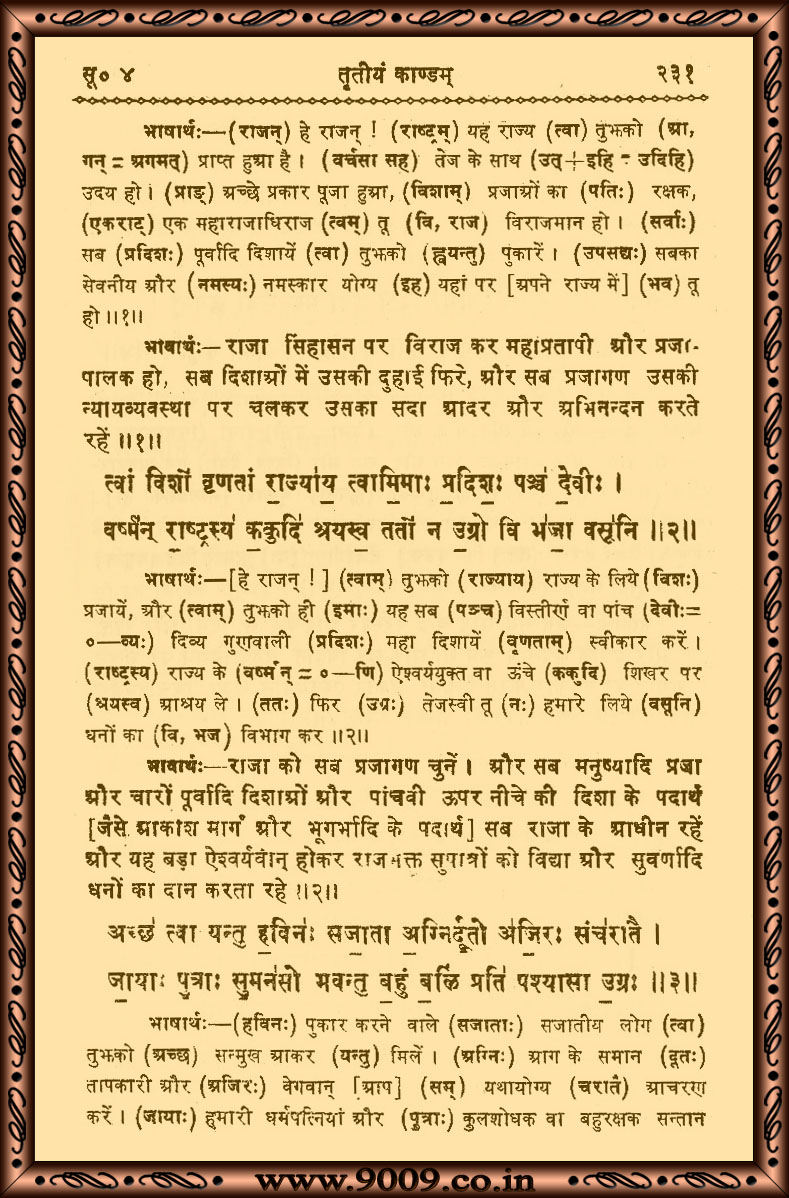 सू० ४ तृतीयं काण्डम् २३१
भाषार्थः—(राजन्) हे राजन् ! (राष्ट्रम्) यह राज्य (त्वा) तुझको (आ,
गन् = अगमत्) प्राप्त हुआ है । (वर्चसा सह) तेज के साथ (उत्+इहि = उदिहि)
उदय हो । (प्राङ्) अच्छे प्रकार पूजा हुआ, (विशाम्) प्रजाओं का (पतिः) रक्षक,
(एकराट्) एक महाराजाधिराज (त्वम्) तू (वि, राज) विराजमान हो । (सर्वाः)
सब (प्रदिशः) पूर्वादि दिशायें (त्वा) तुझको (ह्वयन्तु) पुकारें । (उपसद्यः) सबका
सेवनीय और (नमस्यः) नमस्कार योग्य (इह) यहां पर [अपने राज्य में] (भव) तू
हो ॥१॥
भावार्थः—राजा सिंहासन पर विराज कर महाप्रतापी और प्रजा-
पालक हो, सब दिशाओं में उसकी दुहाई फिरे, और सब प्रजागण उसकी
न्यायव्यवस्था पर चलकर उसका सदा आदर और अभिनन्दन करते
रहें ॥१॥
त्वां विशो॑ वृणतां रा॒ज्या॑य॒ त्वामि॒माः प्र॒दिशः॒ पञ्च॑ दे॒वीः ।
वर्ष्म॑न् रा॒ष्ट्रस्य॑ क॒कुदि॑ श्रयस्व॒ ततो॑ न उ॒ग्रो वि भ॑जा॒ वसू॑नि ॥२॥
भाषार्थः—[हे राजन् !] (त्वाम्) तुझको (राज्याय) राज्य के लिये (विशः)
प्रजायें, और (त्वाम्) तुझको ही (इमाः) यह सब (पञ्च) विस्तीर्ण वा पांच (देवीः=
०—व्यः) दिव्य गुणवाली (प्रदिशः) महा दिशायें (वृणताम्) स्वीकार करें ।
(राष्ट्रस्य) राज्य के (वर्ष्मन् = ०—णि) ऐश्वर्ययुक्त वा ऊंचे (ककुदि) शिखर पर
(श्रयस्व) आश्रय ले । (ततः) फिर (उग्रः) तेजस्वी तू (नः) हमारे लिये (वसूनि)
धनों का (वि, भज) विभाग कर ॥२॥
भावार्थः—राजा को सब प्रजागण चुनें । और सब मनुष्यादि प्रजा
और चारों पूर्वादि दिशाओं और पांचवी ऊपर नीचे की दिशा के पदार्थ
[जैसे आकाश मार्ग और भूगर्भादि के पदार्थ] सब राजा के आधीन रहें
और यह बड़ा ऐश्वर्यवान् होकर राजभक्त सुपात्रों को विद्या और सुवर्णादि
धनों का दान करता रहे ॥२॥
अच्छ॑ त्वा यन्तु ह॒विनः॑ सजा॒ता अ॒ग्निर्दू॒तो अ॑जि॒रः संच॑रातै ।
जा॒याः पु॒त्राः सु॒मन॑सो भवन्तु ब॒हुं ब॒लिं प्रति॑ पश्यासा उ॒ग्रः ॥३॥
भाषार्थः—(हविनः) पुकार करने वाले (सजाताः) सजातीय लोग (त्वा)
तुझको (अच्छ) सन्मुख आकर (यन्तु) मिलें । (अग्निः) आग के समान (दूतः)
तापकारी और (अजिरः) वेगवान् [आप] (सम्) यथायोग्य (चरातै) आचरण
करें । (जायाः) हमारी धर्मपत्नियां और (पुत्राः) कुलशोधक वा बहुरक्षक सन्तान
www.9009.co.in